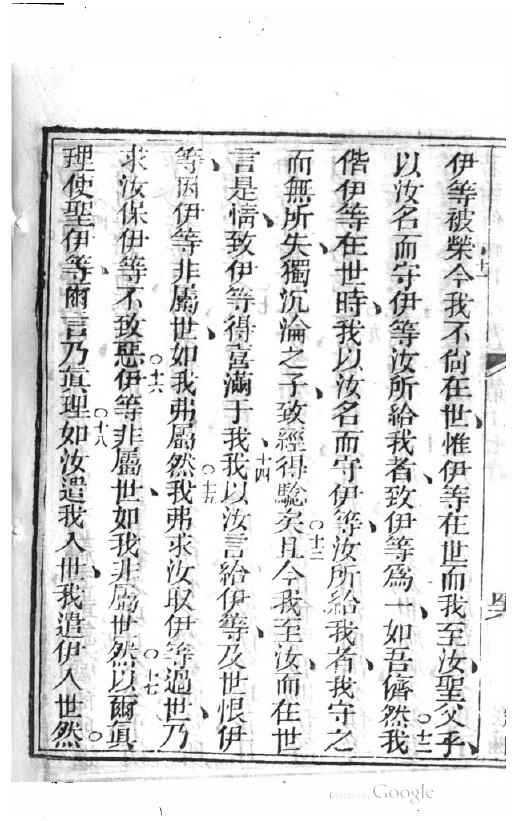 伊等被榮今我不尙在世、惟伊等在世而我至汝、聖父乎、
以汝名而守伊等汝所給我者、致伊等爲一、如吾儕然○十二我
偕伊等在世時、我以汝名而守伊等、汝所給我者、我守之
而無所失、獨沉淪之子、致經得騐矣○十三且今我至汝、而在世
言是情、致伊等得喜滿于我、十四我以汝言給伊等、及世恨伊
等、因伊等非屬世、如我弗屬然○十五我弗求汝取伊等過世、乃
求汝保伊等不致惡○十六伊等非屬世、如我非屬世然○十七以爾眞
理使聖伊等、爾言乃眞理○十八如汝遣我入世、我遣伊入世然○
Digitized by Google